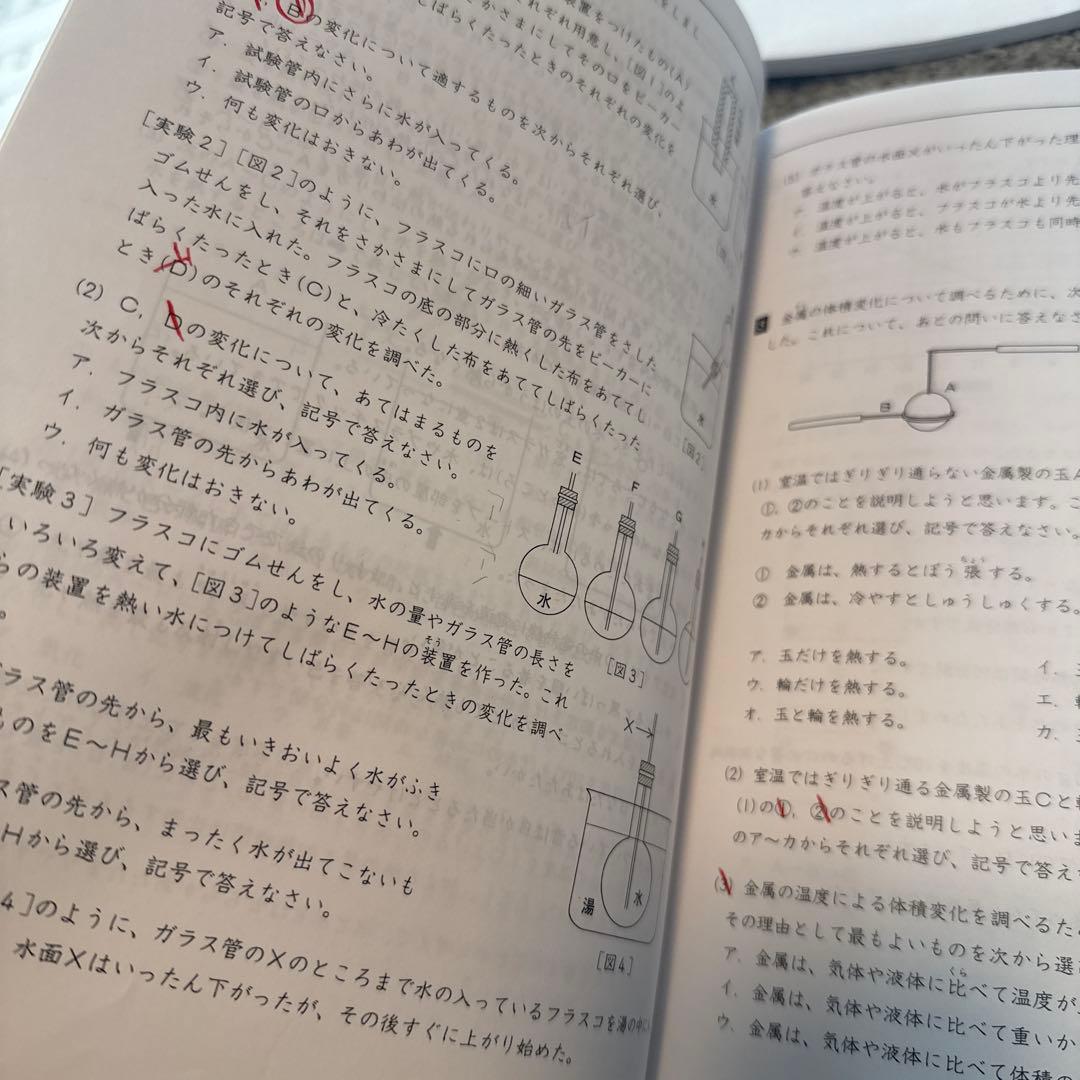 装置をつけたもの(A)
それぞれ用意し、[図1]のよ
かさまにしてその口をビーカー
しばらくたったときのそれぞれの変化を
Bの変化について適するものを次からそれぞれ選び、
記号で答えなさい。
ア. 試験管内にさらに水が入ってくる。
イ. 試験管の口からあわが出てくる。
ウ. 何も変化はおきない。
水
[実験2] [図2]のように、フラスコに口の細いガラス管をさした
ゴムせんをし、それをさかさまにしてガラス管の先をビーカーに
入った水に入れた。フラスコの底の部分に熱くした布をあててし
ばらくたったとき(C)と、冷たくした布をあててしばらくたった
とき(D)のそれぞれの変化を調べた。
水
[図2]
(2) C, Dの変化について、あてはまるものを
次からそれぞれ選び、記号で答えなさい。
ア. フラスコ内に水が入ってくる。
イ. ガラス管の先からあわが出てくる。
ウ. 何も変化はおきない。
E
F
G
水
[図3]
[実験3] フラスコにゴムせんをし、水の量やガラス管の長さを
いろいろ変えて、[図3]のようなE〜Hの装置を作った。これ
そう
らの装置を熱い水につけてしばらくたったときの変化を調べ
ラス管の先から、最もいきおいよく水がふき
ものをE〜Hから選び、記号で答えなさい。
ス管の先から、まったく水が出てこないも
Hから選び、記号で答えなさい。
X
湯
水
[図4]
4]のように、ガラス管のXのところまで水の入っているフラスコを湯の中に
水面Xはいったん下がったが、その後すぐに上がり始めた。
ガラス管の水面Xがいったん下がった理
答えなさい。
温度が上がると、水がフラスコより先
温度が上がると、フラスコが水より先
温度が上がると、水もフラスコも同時
金属の体積変化について調べるために、次
した。これについて、あとの問いに答えなさ
A
B
(1) 室温ではぎりぎり通らない金属製の玉A
①, ②のことを説明しようと思います。こ
カからそれぞれ選び、記号で答えなさい。
ちょう
① 金属は、熱するとぼう張する。
② 金属は、冷やすとしゅうしゅくする。
ア. 玉だけを熱する。
イ.
ウ. 輪だけを熱する。
エ.
オ. 玉と輪を熱する。
カ.
(2) 室温ではぎりぎり通る金属製の玉Cと
(1)の①, ②のことを説明しようと思いま
のア〜カからそれぞれ選び、記号で答え
(3) 金属の温度による体積変化を調べるた
その理由として最もよいものを次から選
くら
ア. 金属は、気体や液体に比べて温度が
イ. 金属は、気体や液体に比べて重いか
ウ. 金属は、気体や液体に比べて体積の